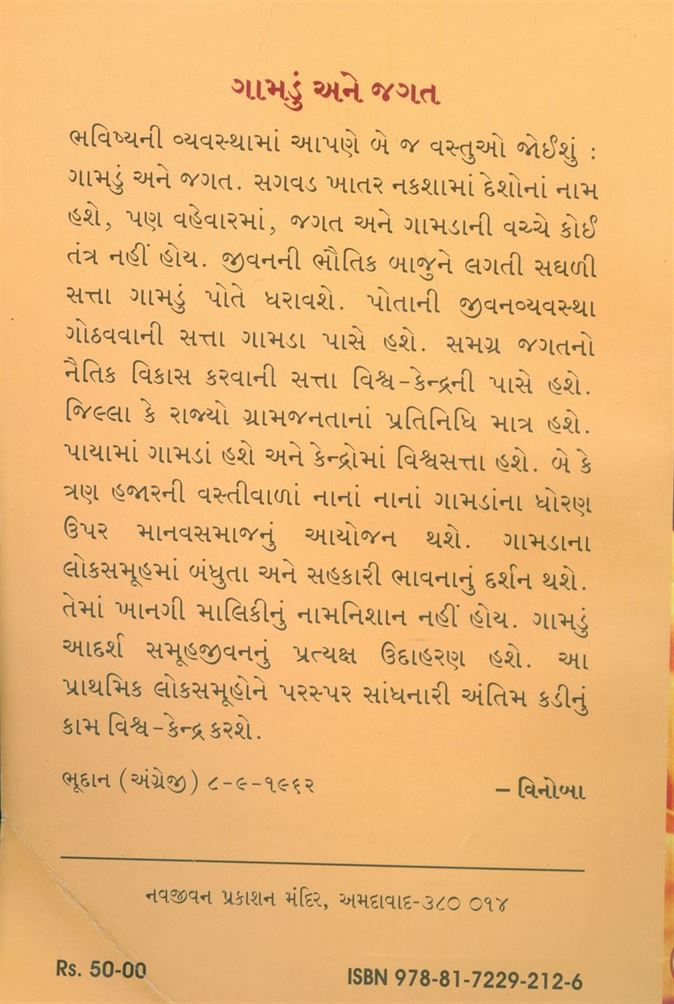 ગામડું અને જગત
ભવિષ્યની વ્યવસ્થામાં આપણે બે જ વસ્તુઓ જોઈશું :
ગામડું અને જગત. સગવડ ખાતર નકશામાં દેશોનાં નામ
હશે, પણ વહેવારમાં, જગત અને ગામડાની વચ્ચે કોઈ
તંત્ર નહીં હોય. જીવનની ભૌતિક બાજુને લગતી સઘળી
સત્તા ગામડું પોતે ધરાવશે. પોતાની જીવનવ્યવસ્થા
ગોઠવવાની સત્તા ગામડા પાસે હશે. સમગ્ર જગતનો
નૈતિક વિકાસ કરવાની સત્તા વિશ્વ-કેન્દ્રની પાસે હશે.
જિલ્લા કે રાજ્યો ગ્રામજનતાનાં પ્રતિનિધિ માત્ર હશે.
પાયામાં ગામડાં હશે અને કેન્દ્રોમાં વિશ્વસત્તા હશે. બે કે
ત્રણ હજારની વસ્તીવાળાં નાનાં નાનાં ગામડાંના ધોરણ
ઉપર માનવસમાજનું આયોજન થશે. ગામડાના
લોકસમૂહમાં બંધુતા અને સહકારી ભાવનાનું દર્શન થશે.
તેમાં ખાનગી માલિકીનું નામનિશાન નહીં હોય. ગામડું
આદર્શ સમૂહજીવનનું પ્રત્યક્ષ ઉદાહરણ હશે. આ
પ્રાથમિક લોકસમૂહોને પરસ્પર સાંધનારી અંતિમ કડીનું
કામ વિશ્વ-કેન્દ્ર કરશે.
ભૂદાન (અંગ્રેજી) ૮-૯-૧૯૬૨ – વિનોબા
નવજીવન પ્રકાશન મંદિર, અમદાવાદ-૩૮૦ ૦૧૪
Rs. 50-00 ISBN 978-81-7229-212-6